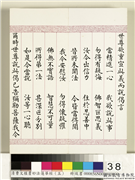 世尊欲重宣此義而說偈言
當精進一心 我欲說此事
勿得有疑悔 佛智叵思議
汝今出信力 住於忍善中
昔所未聞法 今皆當得聞
我今安慰汝 勿得懷疑懼
佛無不實語 智慧不可量
所得第一法 甚深叵分別
如是今當說 汝等一心聽
爾時世尊說此偈已告彌勒菩薩我今
38